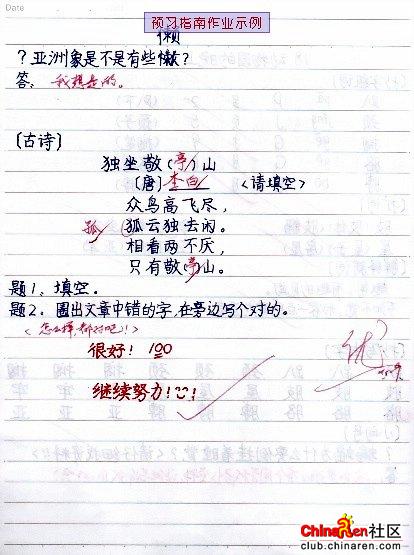 Date
预习指南作业示例
懒
?亚洲象是不是有些懒?
答:我想是的。
[古诗]
独坐敬(亭)山
[唐]李白 <请填空>
众鸟高飞尽,
孤 狐云独去闲。
相看两不厌,
只有敬(亭)山。
题1、填空。
题2、圈出文章中错的字,在旁边写个对的。
<怎么样,都对吧!>
很好!100
优
继续努力!
ChinaRen社区
club.chinaren.com